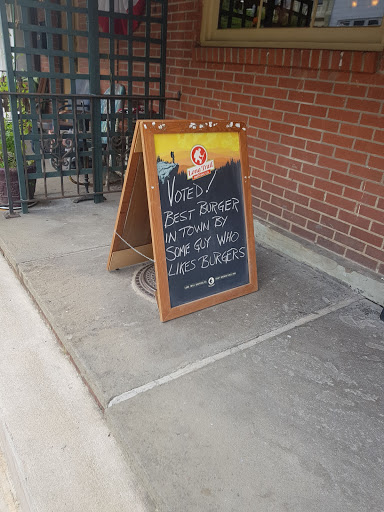 LONG TRAIL
VOTED!
BEST BURGER
IN TOWN BY
SOME GUY WHO
LIKES BURGERS